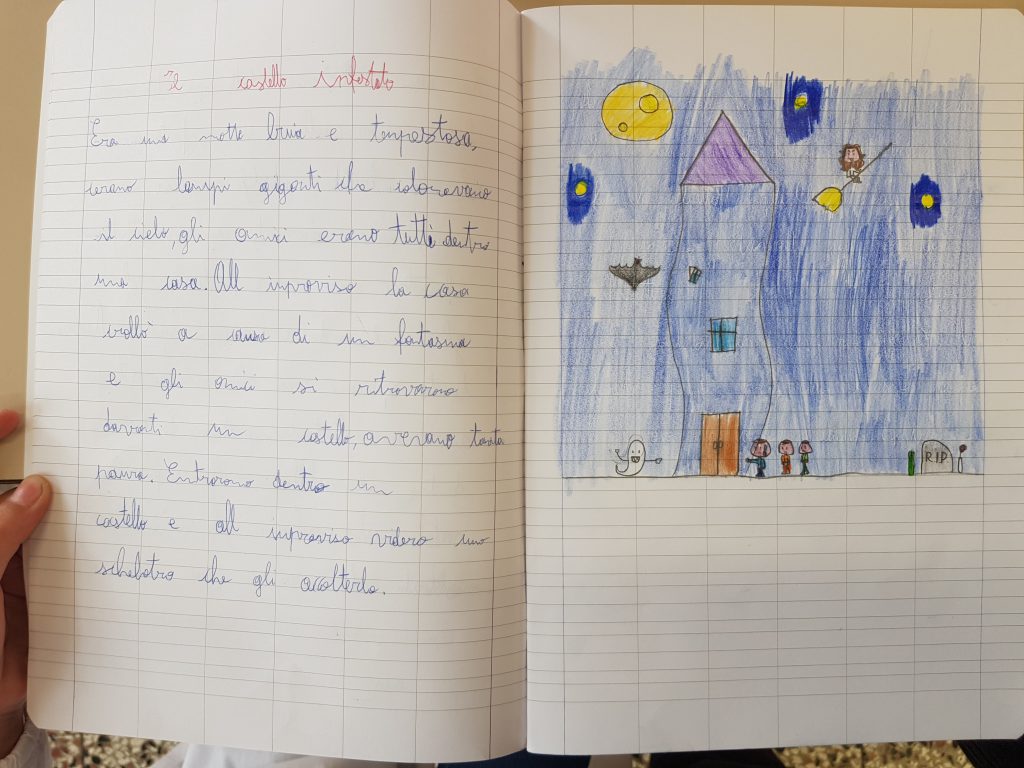 Il castello infestato
Era una notte buia e tempestosa,
cerano lampi giganti che coloravano
il cielo, gli amici erano tutti dentro
una casa. All inproviso la casa
crollò a causa di un fantasma
e gli amici si ritrovarono
davanti un castello, avevano tanta
paura. Entrarono dentro un
castello e all improviso videro uno
schelatro che gli
RIP